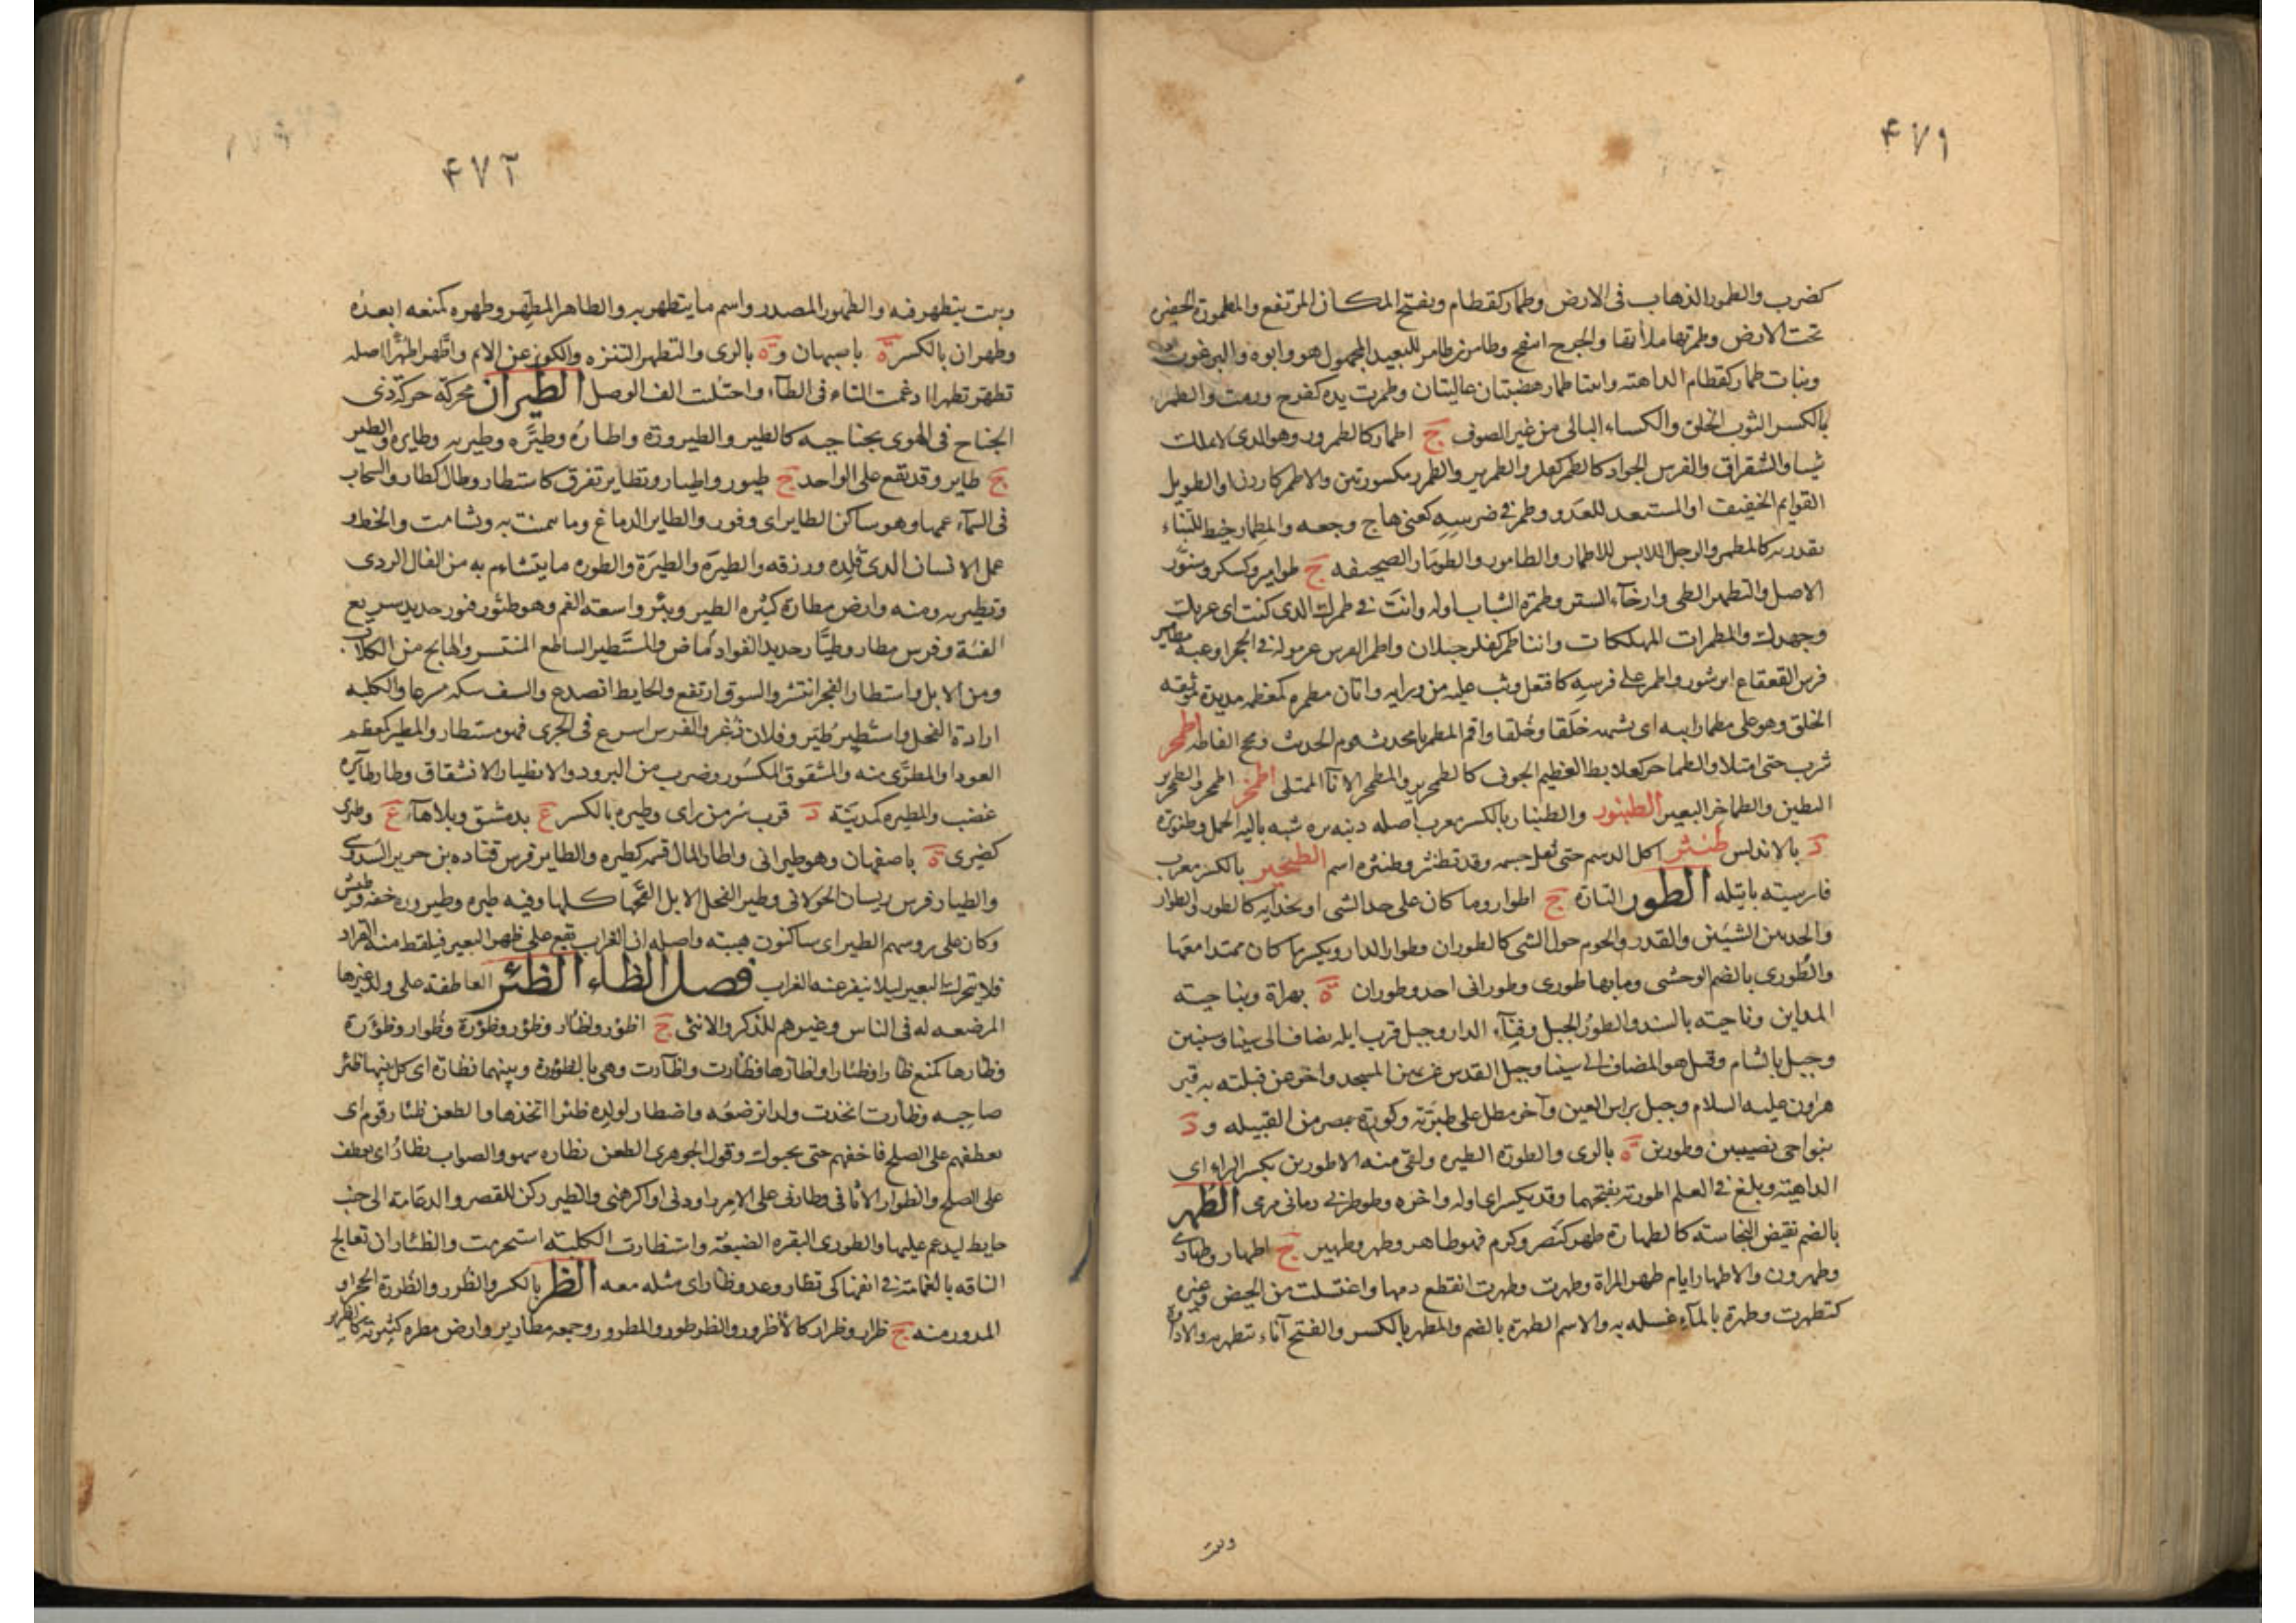 ۴۷۱
كضرب والطمور الذهاب فى الارض وطمار كقطام ويفتح المكان المرتفع والمطمورة الحفيره
تحت الارض وطمرتها ملأتها والجرح انتفخ وطامر بن طامر للبعيد المجهول هو وابوه والبرغوث
وبنات طمار كقطام الداهيه وابنتا طمار هضبتان عاليتان وطمرت يده كفرح ورمت والطمر
بالكسر الثوب الخلق والكساء البالى من غير الصوف ج اطمار كالطمرور وهو الذى لا يملك
شيا والشقراق والفرس الجواد كالطمر كفلز والطمرير والطمرر مكسورتين والاطمر كاردن او الطويل
القوايم الخفيف او المستعد للعدو وطمر فى ضرسه كعنى هاج وجعه والمطمار خيط للبناء
يقدر به كالمطمر والرجل اللابس للاطمار والطامور والطومار الصحيفه ج طوامير وكسكر وسنور
الاصل والتطمير الطى وارخآء الستر وطمرة الشباب اوله وانت فى طمرك الذى كنت اى غرتك
وجهلك والمطمرات المهلكات وابنتا طمر كفلز جبلان واطمر الفرس غرموله فى الحجر اوعبه مطامير
فرس القعقاع ابن شور واطمر على فرسه كافتعل وثب عليه من ورايه واتان مطمره كمعظمه مديدة موثقه
الخلق وهو على مطمار ابيه اى يشبهه خلقا وخلقا واقم المطمر يا محدث قوم الحديث ونقح الفاظه اطمحر
شرب حتى امتلا والطماحر كعلابط العظيم الجوف كالطمحرير والمطمحر الانآء الممتلى اطمخر اطمحر والطمخرير
البطين والطماخر البعير الطنبور والطنبار بالكسر معرب اصله دنبه بره شبه بالية الحمل وطنوبرة
د بالاندلس طنثر اكل الدسم حتى ثقل جسمه وقد تطنثر وطنثره اسم الطنجير بالكسر معرب
فارسيته باتيله الطور التارة ج اطوار وما كان على حد الشى او بحذايه كالطور والطوار
والحد بين الشيئين والقدر والحوم حول الشى كالطوران وطوار الدار ويكسر ما كان ممتدا معها
والطورى بالضم الوحشى وما بها طورى وطورانى احد وطوران ة بهراة وبناحيته
المداين وناحيته بالسند والطور الجبل وفنآء الدار وجبل قرب ايله يضاف الى سينا وسينين
وجبل بالشام وقيل هو المضاف الى سينا وجبل القدس عن يمين المسجد واخر عن قبلته به قبر
هارون عليه السلام وجبل براس العين وآخر مطل على طبرية وكورة بمصر من القبليه و د
بنواحى نصيبين وطورين ة بالرى والطورة الطيره ولقى منه الاطورين بكسر الراء اى
الداهيته وبلغ فى العلم اطوريه بفتحهما وقد يكسر اى اوله واخره وطوطر بى رمانى مرمى الطهر
بالضم نقيض النجاسة كالطهارة طهر كنصر وكرم فهو طاهر وطهر وطهير ج اطهار وطهارى
وطهرون والاطهار ايام طهر المراة وطهرت وطهرت انقطع دمها واغتسلت من الحيض وغيره
كتطهرت وطهرة بالمآء غسله به والاسم الطهرة بالضم والمطهرة بالكسر والفتح آناء يتطهر به والاداوة
وبيت
۴۷۲
وبيت يتطهر فيه والطهور المصدر واسم ما يتطهر به والطاهر المطهر وطهره كمنعه ابعده
وطهران بالكسر ة باصبهان وة بالرى والتطهر التنزه والكف عن الاثم واطهر اطهرا اصله
تطهر تطهرا ادغمت التاء فى الطآء واجتلت الف الوصل الطيران محركة حركة ذى
الجناح فى الهوى بجناحيه كالطير والطيرورة واطاره وطيره وطير به وطايره والطير
ج طاير وقد تقع على الواحد ج طيور واطيار وتطاير تفرق كاستطار وطال كطار والسحاب
فى السمآء عمها وهو ساكن الطاير اى وقور والطاير الدماغ وما تيمنت به وتشامت والحظ و
عمل الانسان الذى قلده ورزقه والطيره والطيرة والطوره ما يتشاءم به من الفال الردى
وتطير به ومنه وارض مطارة كثيره الطير وبئر واسعه الفم وهو طيور فيور حديد سريع
الفئة وفرس مطار وطيار حديد الفواد ماض والمستطير الساطع المنتشر والهايج من الكلاب
ومن الابل واستطار الفجر انتشر والسوق ارتفع والحايط انصدع والسيف سله مسرعا والكلبه
ارادة الفحل واستطير طير وفلان ذعر والفرس اسرع فى الجرى فهو مستطار والمطير كمعظم
العود او المطرى منه والمشقوق المكسور وضرب من البرود والانطيار الانشقاق وطار طآئره
غضب والمطيره كمدينة د قرب سر من راى وطيره بالكسر ع بدمشق وبلاهآء ع وطيرى
كضيرى ة باصفهان وهو طيرانى واطار المال قسمه كطيره والطاير فرس قتاده بن جرير السدوسى
والطيار فرس ريسان الخولانى وطير الفحل الابل القحها كلها وفيه طيره وطيروره خفه وطيش
وكان على روسهم الطير اى ساكنون هيبته واصله ان الغراب يقع على ظهر البعير فيلقط منه القراد
فلا يتحرك البعير ليلا ينفر عنه الغراب فصل الظاء الظئر العاطفة على ولد غيرها
المرضعه له فى الناس وغيرهم للذكر والانثى ج اظؤر واظآر وظؤر وظؤرة وظوار وظؤرة
وظارها كمنع ظارا وظئارا واظارها فظارت واظآرت وهى بالظؤرة وبينهما مظارة اى كل منهما ظئر
صاحبه وظارت اتخذت ولدا ترضعه واضطار لولده ظئرا اتخذها والطعن ظئار قوم اى
يعطفهم على الصلح فاخفهم حتى يحبوك وقول الجوهرى الطعن يظاره سهو والصواب يظار اى يعطف
على الصلح والظوار الاثافى وظارنى على الامر راودنى او اكرهنى والظير ركن للقصر والدعامة الى جنب
حايط ليدعم عليها والظورى البقره الضبعة واستظارت الكلبته استحرمت والظئار ان تعالج
الناقه بالغمامة فى انفها كى تظار وعدو ظار اى مثله معه الظر بالكسر والظرر والظررة الحجر او
المدور منه ج ظران وظرار كالاظرور والظرظور والمظرور وجمعه مظارير وارض مظره كثيرته كالظرير